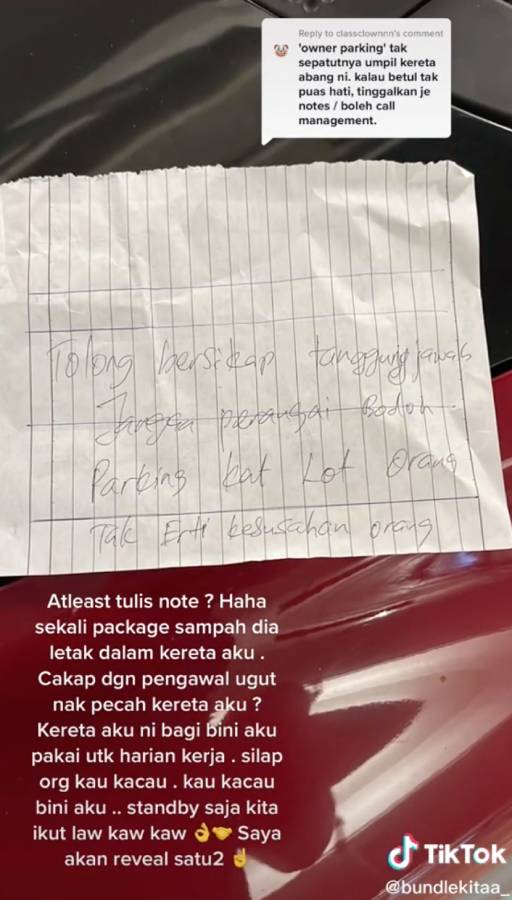 Reply to classclownnn's comment
'owner parking' tak
sepatutnya umpil kereta
abang ni. kalau betul tak
puas hati, tinggalkan je
notes / boleh call
management.
Tolong bersikap tanggung jawab
Jangan perangai Bodoh.
Parking kat Lot Orang
Tak Erti kesusahan orang
Atleast tulis note ? Haha
sekali package sampah dia
letak dalam kereta aku .
Cakap dgn pengawal ugut
nak pecah kereta aku ?
Kereta aku ni bagi bini aku
pakai utk harian kerja . silap
org kau kacau . kau kacau
bini aku .. standby saja kita
ikut law kaw kaw 👌🤝 Saya
akan reveal satu2 ✌️
TikTok
@bundlekitaa_